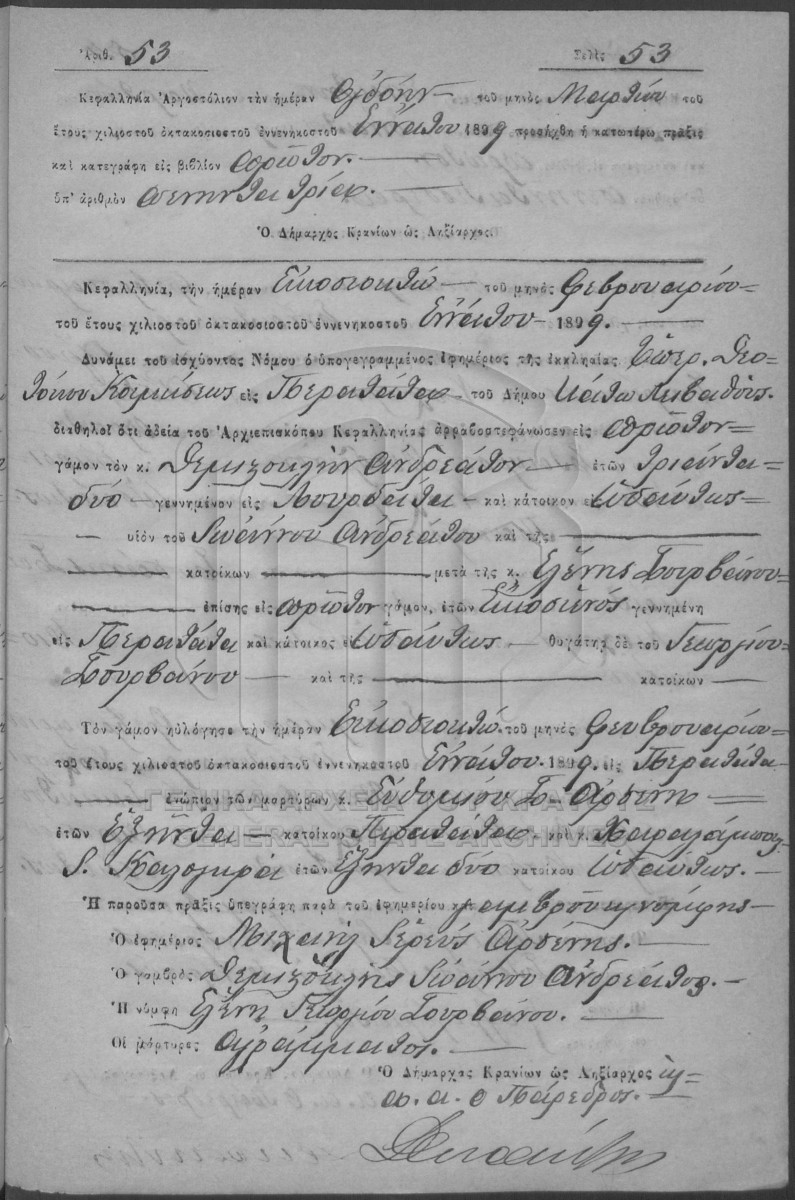 Ἀριθ. 53 Σελὶς 53
Κεφαλληνία Ἀργοστόλιον τὴν ἡμέραν ὀγδόην τοῦ μηνὸς Μαρτίου τοῦ
ἔτους χιλιοστοῦ ὀκτακοσιοστοῦ ἐννενηκοστοῦ Ἐννάτου 1899 προσήχθη ἡ κατωτέρω πρᾶξις
καὶ κατεγράφη εἰς βιβλίον πρῶτον.
ὑπ' ἀριθμὸν πενῆντα τρία.
Ὁ Δήμαρχος Κρανίων ὡς Ληξίαρχος.
Κεφαλληνία, τὴν ἡμέραν Εἰκοστοκτὼ τοῦ μηνὸς Φεβρουαρίου
τοῦ ἔτους χιλιοστοῦ ὀκτακοσιοστοῦ ἐννενηκοστοῦ Ἐννάτου 1899.
Δυνάμει τοῦ ἰσχύοντος Νόμου ὁ ὑπογεγραμμένος ἐφημέριος τῆς ἐκκλησίας Ὑπερ. Θεο-
τόκου Κοιμήσεως εἰς Περατάτα τοῦ Δήμου Κάτω Λειβαθοῦς.
διαθηλοῖ ὅτι ἀδείᾳ τοῦ Ἀρχιεπισκόπου Κεφαλληνίας ἀρραβοστεφάνωσεν εἰς πρῶτον
γάμον τὸν κ. Θεμιστοκλῆν Ἀνδρεάτον ἐτῶν τριάντα
δύο γεννημένον εἰς Λουρδάτα καὶ κάτοικον εἰς ὡσαύτως
υἱὸν τοῦ Ἰωάννου Ἀνδρεάτου καὶ τῆς
κατοίκων μετὰ τῆς κ. Ἑλένης Σουρβάνου
ἐπίσης εἰς πρῶτον γάμον, ἐτῶν Εἰκοσιενὸς γεννημένη
εἰς Περατάτα καὶ κάτοικος εἰς ὡσαύτως θυγάτηρ δὲ τοῦ Γεωργίου
Σουρβάνου καὶ τῆς κατοίκων
Τὸν γάμον ηὐλόγησε τὴν ἡμέραν Εἰκοστοκτὼ τοῦ μηνὸς Φευρουαρίου
τοῦ ἔτους χιλιοστοῦ ὀκτακοσιοστοῦ ἐννενηκοστοῦ Ἐννάτου 1899. εἰς Περατάτα
ἐνώπιον τῶν μαρτύρων κ. Εὐθυμίου Σ. Ἀρσένη
ἐτῶν Ἑξῆντα κατοίκου Περατάτα καὶ κ. Χαραλάμπους
S. Καλογηρᾶ ἐτῶν ἑξῆντα δύο κατοίκου ὡσαύτως.
Ἡ παροῦσα πρᾶξις ὑπεγράφη παρὰ τοῦ ἐφημερίου καὶ γαμβροῦ κ νύμφης
Ὁ ἐφημέριος Μιχαὴλ Ἱερεὺς Ἀρσένης.
Ὁ γαμβρὸς Θεμιστοκλῆς Ἰωάννου Ἀνδρεάτος.
Ἡ νύμφη Ἑλένη Γεωργίου Σουρβάνου.
Οἱ μάρτυρες ἀγράμματοι.
Ὁ Δήμαρχος Κρανίων ὡς Ληξίαρχος
α. α. ὁ Πάρεδρος.
ΓΕΝΙΚΑ ΑΡΧΕΙΑ ΤΟΥ ΚΡΑΤΟΥΣ
GENERAL STATE ARCHIVES